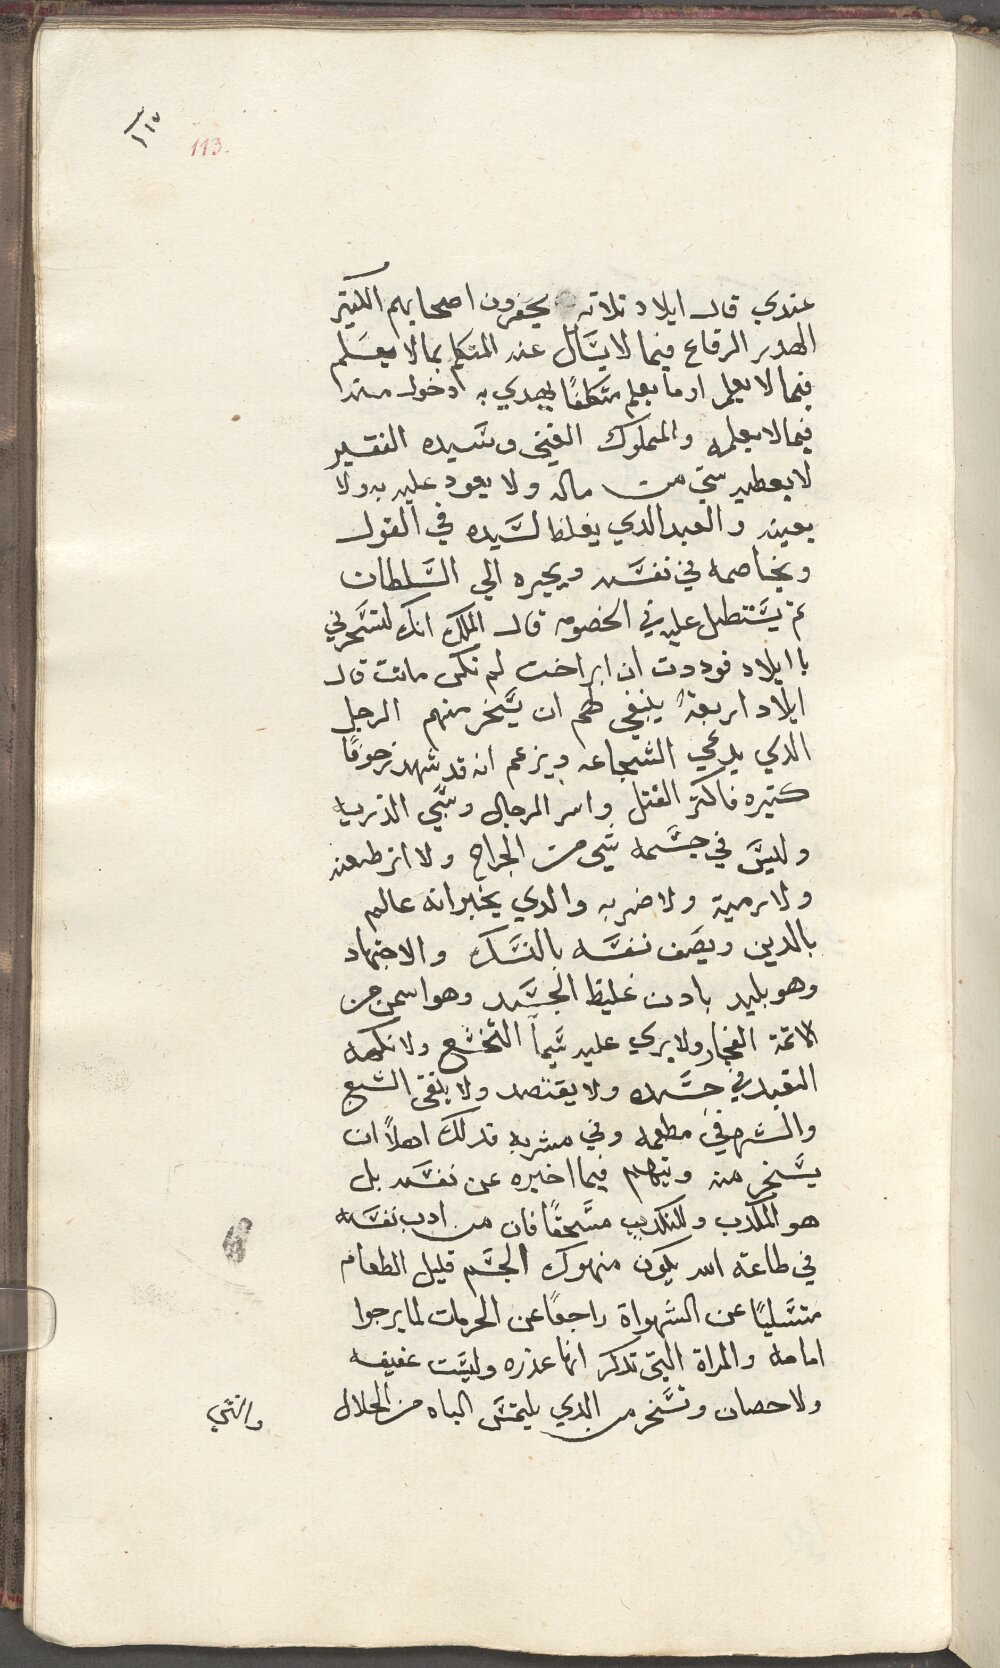 ١١٥
113.
عندي قال ايلاد تلاته يحقرون اصحابهم الكتير
الهدر الرقاع فيما لا يسال عنه المتكلم بما لا يعسلم
فيما لا يعلم او ما يعلم متكلفًا يهدي به ادخول
فيما لا يعلمه والمملوك الغني وسيده الفقير
لا يعطيه شي من ماله ولا يعود عليه به ولا
يعينه والعبد الدي يغلظ لسيده في القول
ويخاصمه في نفسه ويجيره الي السلطان
تم يستطل عليه في الخصومه قال الملك انك لتسخرني
يا ايلاد فوددت ان ابراخت لم تكن ماتت قال
ايلاد اربعة ينبغي لهم ان يسخر منهم الرجل
الدي يدعي الشجاعه ويزعم انه قد شهد زحوفًا
كتيره فاكتر القتل واسر الرجال وسبي الذريه
وليس في جسمه شي من الجراح ولا اتر طعنه
ولا رمية ولا ضربه والدي يخبر انه عالم
بالدين ويصف نفسه بالنسك والاجتهاد
وهو بليد بادن غليظ الجسد وهو اسمن من
الاتمة الفجار ولا يري عليه سيمآ التخشع ولا نكهه
التعبد في جسده ولا يقتصد ولا يتقي الشبع
والشره في مطعمه وفي مشربه فدلك اهلاً ان
يسخر منه ويتهم فيما اخبره عن نفسه بل
هو المكدب وللتكديب مستحقًا فان من ادب نفسه
في طاعة الله يكون منهوك الجسم قليل الطعام
متسليًا عن الشهواة راجعًا عن الحرمات لما يرجوا
امامه والمراة التي تدكر انها عذره وليست عفيفه
ولا حصان وتسخر من الدي يلتمس الباه من الحلال
والتي